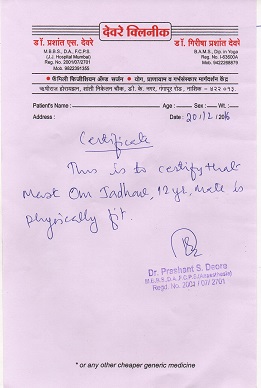 देवरे क्लिनीक
डॉ. प्रशांत एस. देवरे
M.B.B.S., D.A., F.C.P.S.
(J.J. Hospital Mumbai)
Reg. No. 2001/07/2701
Mob. 9822391355
डॉ. गिरीषा प्रशांत देवरे
B.A.M.S., Dip. in Yoga
Reg. No. I-53600A
Mob. 9422268879
• फॅमिली फिजीशियन अँण्ड सर्जन • योग, प्राणायाम व गर्भसंस्कार मार्गदर्शन केंद्र
शांती निकेतन चौक, डी. के. नगर, गंगापूर रोड, नाशिक - ४२२ ०१३.
Patient's Name : Age : Sex : Wt. :
Address : Date : 20/12/2016
Certificate
This is to certify that
Mast Om Jadhav, 12 yr, Male is
physically fit.
Dr. Prashant S. Deore
M.B.B.S., D.A., F.C.P.S.(Anaesthesia)
Regd. No. 2001/07/2701
* or any other cheaper generic medicine